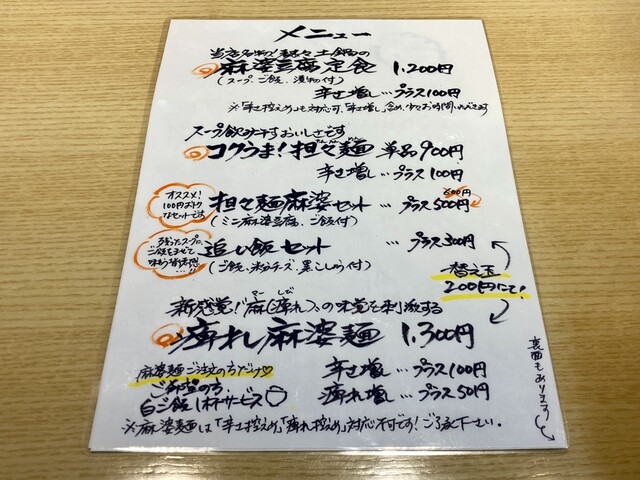 メニュー
当店名物! 熱々土鍋の
麻婆豆腐定食 1,200円
(スープ、ご飯、漬物付)
辛さ増し…プラス100円
※「辛さ控えめ」も対応可、「辛さ増し」含め、少々お時間いただきます
スープ飲み干すおいしさです
コクうま!担々麺 単品900円
辛さ増し…プラス100円
オススメ!
100円おトク
なセットです
担々麺麻婆セット … プラス500円
600円
(ミニ麻婆豆腐、ご飯付)
残ったスープに
ご飯をまぜて
追い飯セット … プラス300円
(ご飯、粉チーズ、黒こしょう付)
替え玉
200円にて!
新感覚!「麻(痺れ)」の味覚を刺激する
マー しび
痺れ麻婆麺 1,300円
麻婆麺ご注文の方だけ♡
ご希望の方
白ご飯1杯サービス
辛さ増し…プラス100円
痺れ増し…プラス50円
※麻婆麺は「辛さ控えめ」「痺れ控えめ」対応不可です!ご了承下さい。
裏面もあります